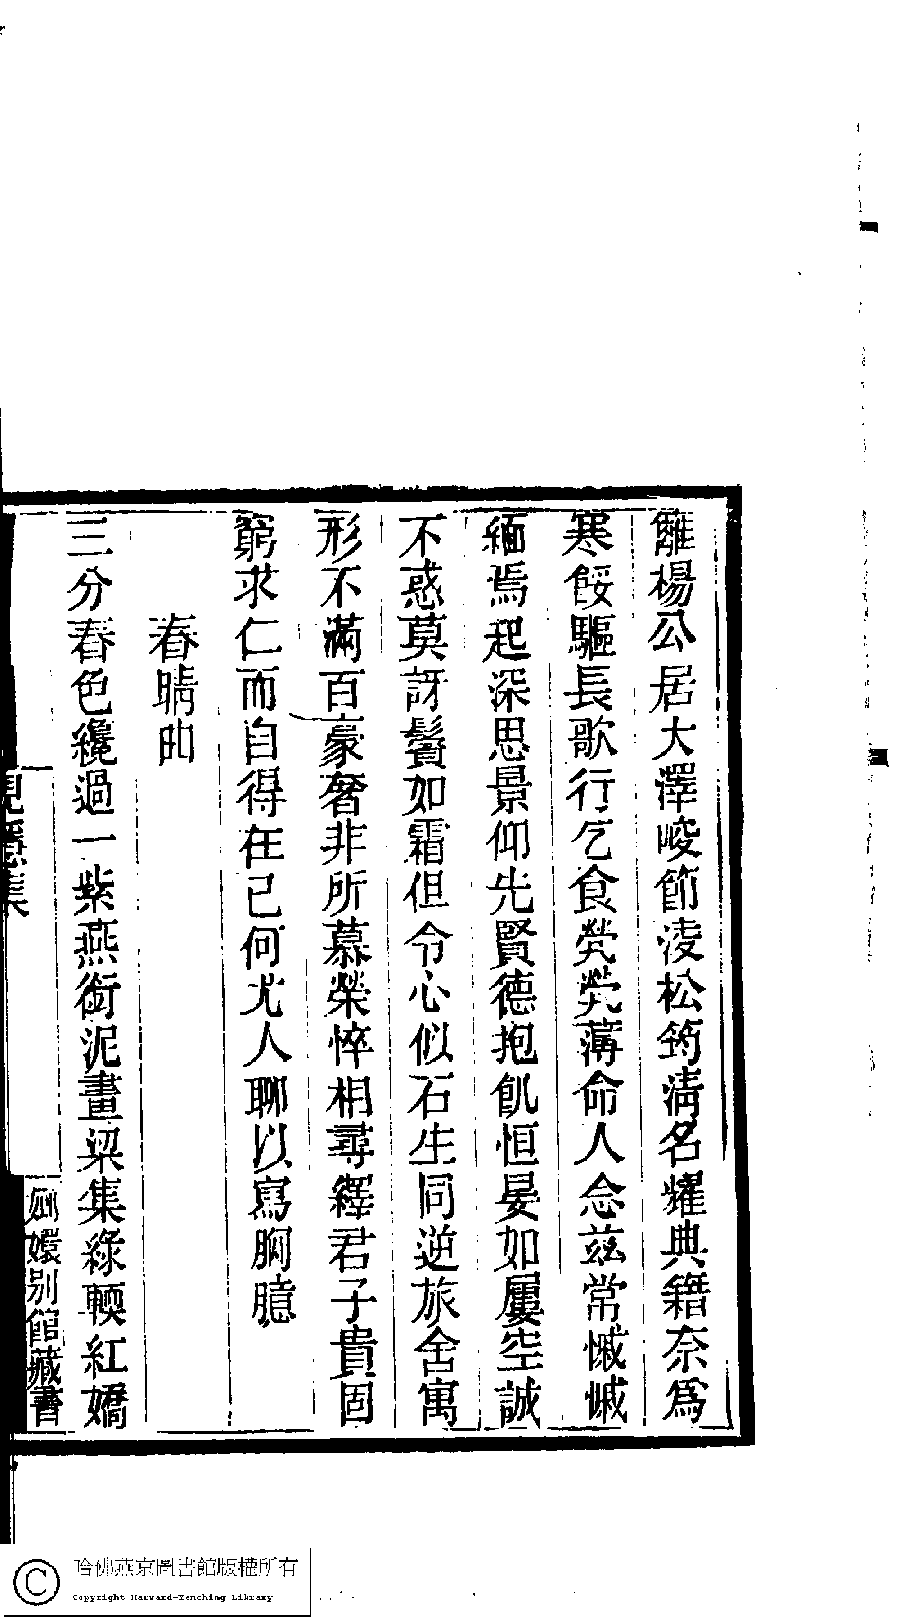 離楊公居大澤峻節淩松筠清名耀典籍奈爲
寒餒驅長歌行乞食煢煢薄命人念茲常慽慽
緬焉起深思景仰先賢德抱飢恒晏如屢空誠
不惑莫訝鬢如霜但令心似石生同逆旅舍寓
形不滿百豪奢非所慕榮悴相尋繹君子貴固
窮求仁而自得在己何尤人聊以寫胸臆
春晴曲
三分春色纔過一紫燕銜泥畫梁集綠輭紅嬌
嬛別館藏書
哈佛燕京圖書館版權所有
Copyright Harvard-Yenching Library